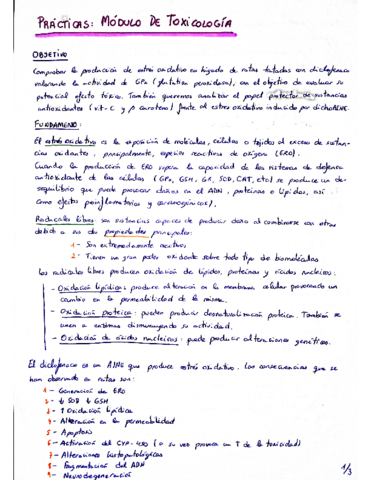 PRÁCTICAS: MÓDULO DE TOXICOLOGÍA
OBJETIVO
Comprobar la producción de estrés oxidativo en hígado de ratas tratadas con diclofenaco
valorando la actividad de GPx (glutatión peroxidasa), con el objetivo de evaluar su
potencial efecto tóxico. También queremos analizar el papel protector de sustancias
antioxidantes (vit-C y β caroteno) frente al estrés oxidativo inducido por diclofenac.
FUNDAMENTO:
El estrés oxidativo es la exposición de moléculas, células o tejidos al exceso de sustan-
cias oxidantes, principalmente, especies reactivas de oxígeno (ERO).
Cuando la producción de ERO supera la capacidad de los sistemas de defensa
antioxidante de las células (GPx, GSH, GR, SOD, CAT, etc) se produce un de-
sequilibrio que puede provocar daños en el ADN, proteínas o lípidos, así
como efectos proinflamatorios y carcinogénicos).
Radicales libres: son sustancias capaces de producir daño al combinarse con otras
debido a sus dos propiedades principales:
1- Son extremadamente reactivos
2- Tienen un gran poder oxidante sobre todo tipo de biomoléculas
Los radicales libres producen oxidación de lípidos, proteínas y ácidos nucleicos:
- Oxidación lipídica: produce alteración en la membrana celular provocando un
cambio en la permeabilidad de la misma.
- Oxidación proteica: pueden producir desnaturalización proteica. También se
unen a enzimas disminuyendo su actividad.
- Oxidación de ácidos nucleicos: puede producir alteraciones genéticas.
El diclofenaco es un AINE que produce estrés oxidativo. Las consecuencias que se
han observado en ratas son:
1- Generación de ERO
2- ↓ SOD ↓ GSH
3- ↑ Oxidación lipídica
4- Alteración en la permeabilidad
5- Apoptosis
6- Activación del CYP-450 (a su vez provoca un ↑ de la toxicidad)
7- Alteraciones histopatológicas
8- Fragmentación del ADN
9- Neurodegeneración
1/3